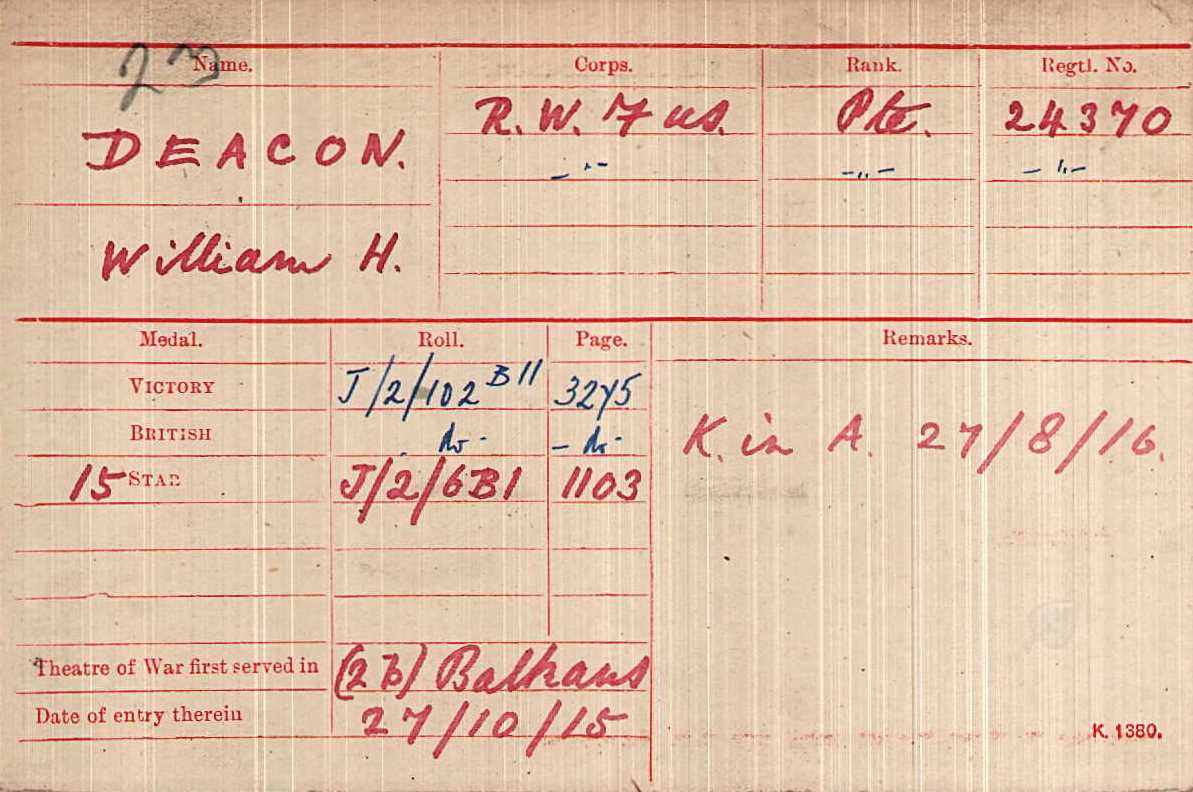 23
Name. Corps. Rank. Regtl. No.
DEACON. R. W. Fus. Pte. 24370
-"- -"- -"-
William H.
Medal. Roll. Page. Remarks.
VICTORY J/2/102 B11 3275
BRITISH do - - do -
K. in A. 27/8/16.
15 STAR J/2/6B1 1103
Theatre of War first served in (2B) Balkans
Date of entry therein 27/10/15
K. 1380.